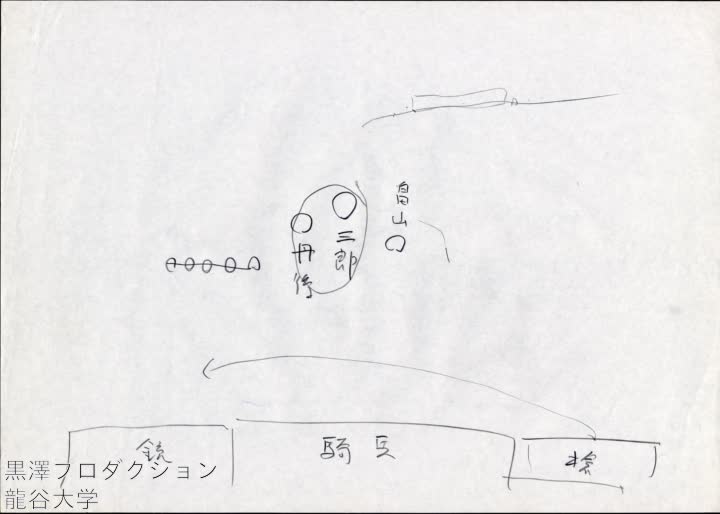 畠山
三郎
丹後
銃
騎兵
槍
黒澤プロダクション
龍谷大学